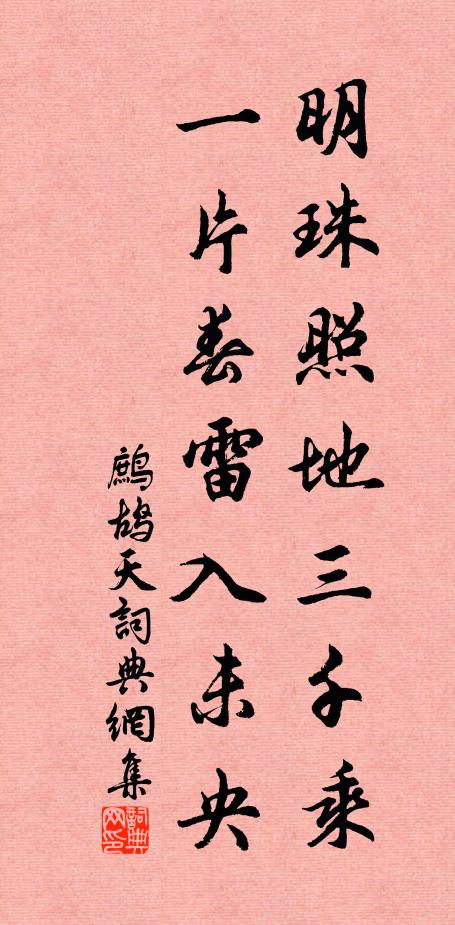 明珠照地三千乘
一片春雷入未央
鷓鴣天詞典網集
詞典網印